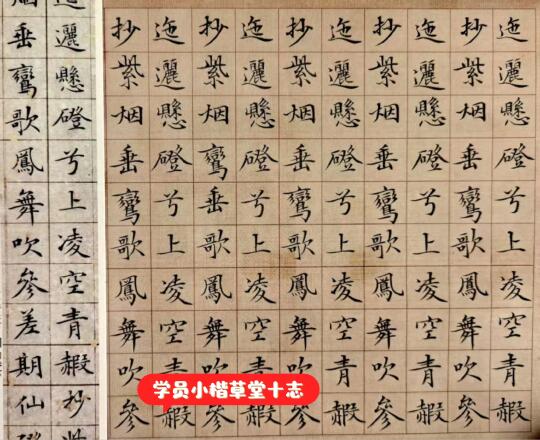 迤邐懸磴兮上凌空青赮
抄紫烟垂鸞歌鳳舞吹參
迤邐懸磴兮上凌空青赮
抄紫烟垂鸞歌鳳舞吹參
迤邐懸磴兮上凌空青赮
抄紫烟垂鸞歌鳳舞吹參
迤邐懸磴兮上凌空青赮
抄紫烟鸞垂歌鳳舞吹參
迤邐懸磴兮上凌空青赮
抄紫烟垂鸞歌鳳舞吹參
邐懸磴兮上凌空青赮抄
烟垂鸞歌鳳舞吹參差期仙
学员小楷草堂十志